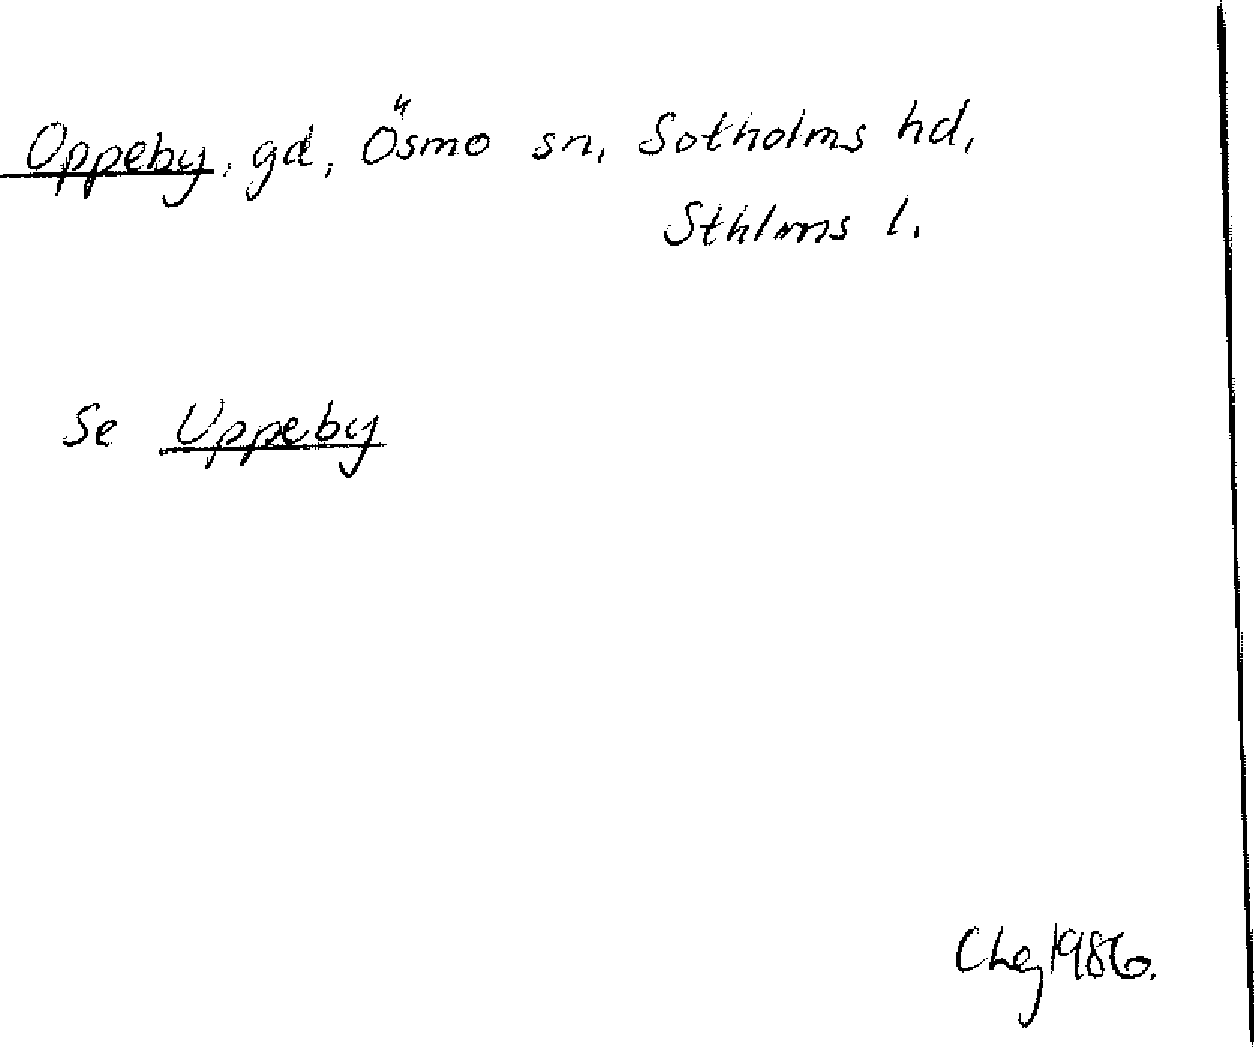 Oppeby, gd, Ösmo sn, Sotholms hd,
Sthlms l.
Se Uppeby
CLej 1986.